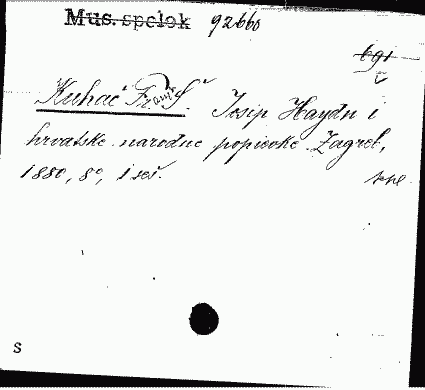 Mus. spelok 92660
Kuhač Franj. Š. Josip Haydn i
hrvatske narodne popievke. Zagreb,
1880, 8º, 1 seš.
S